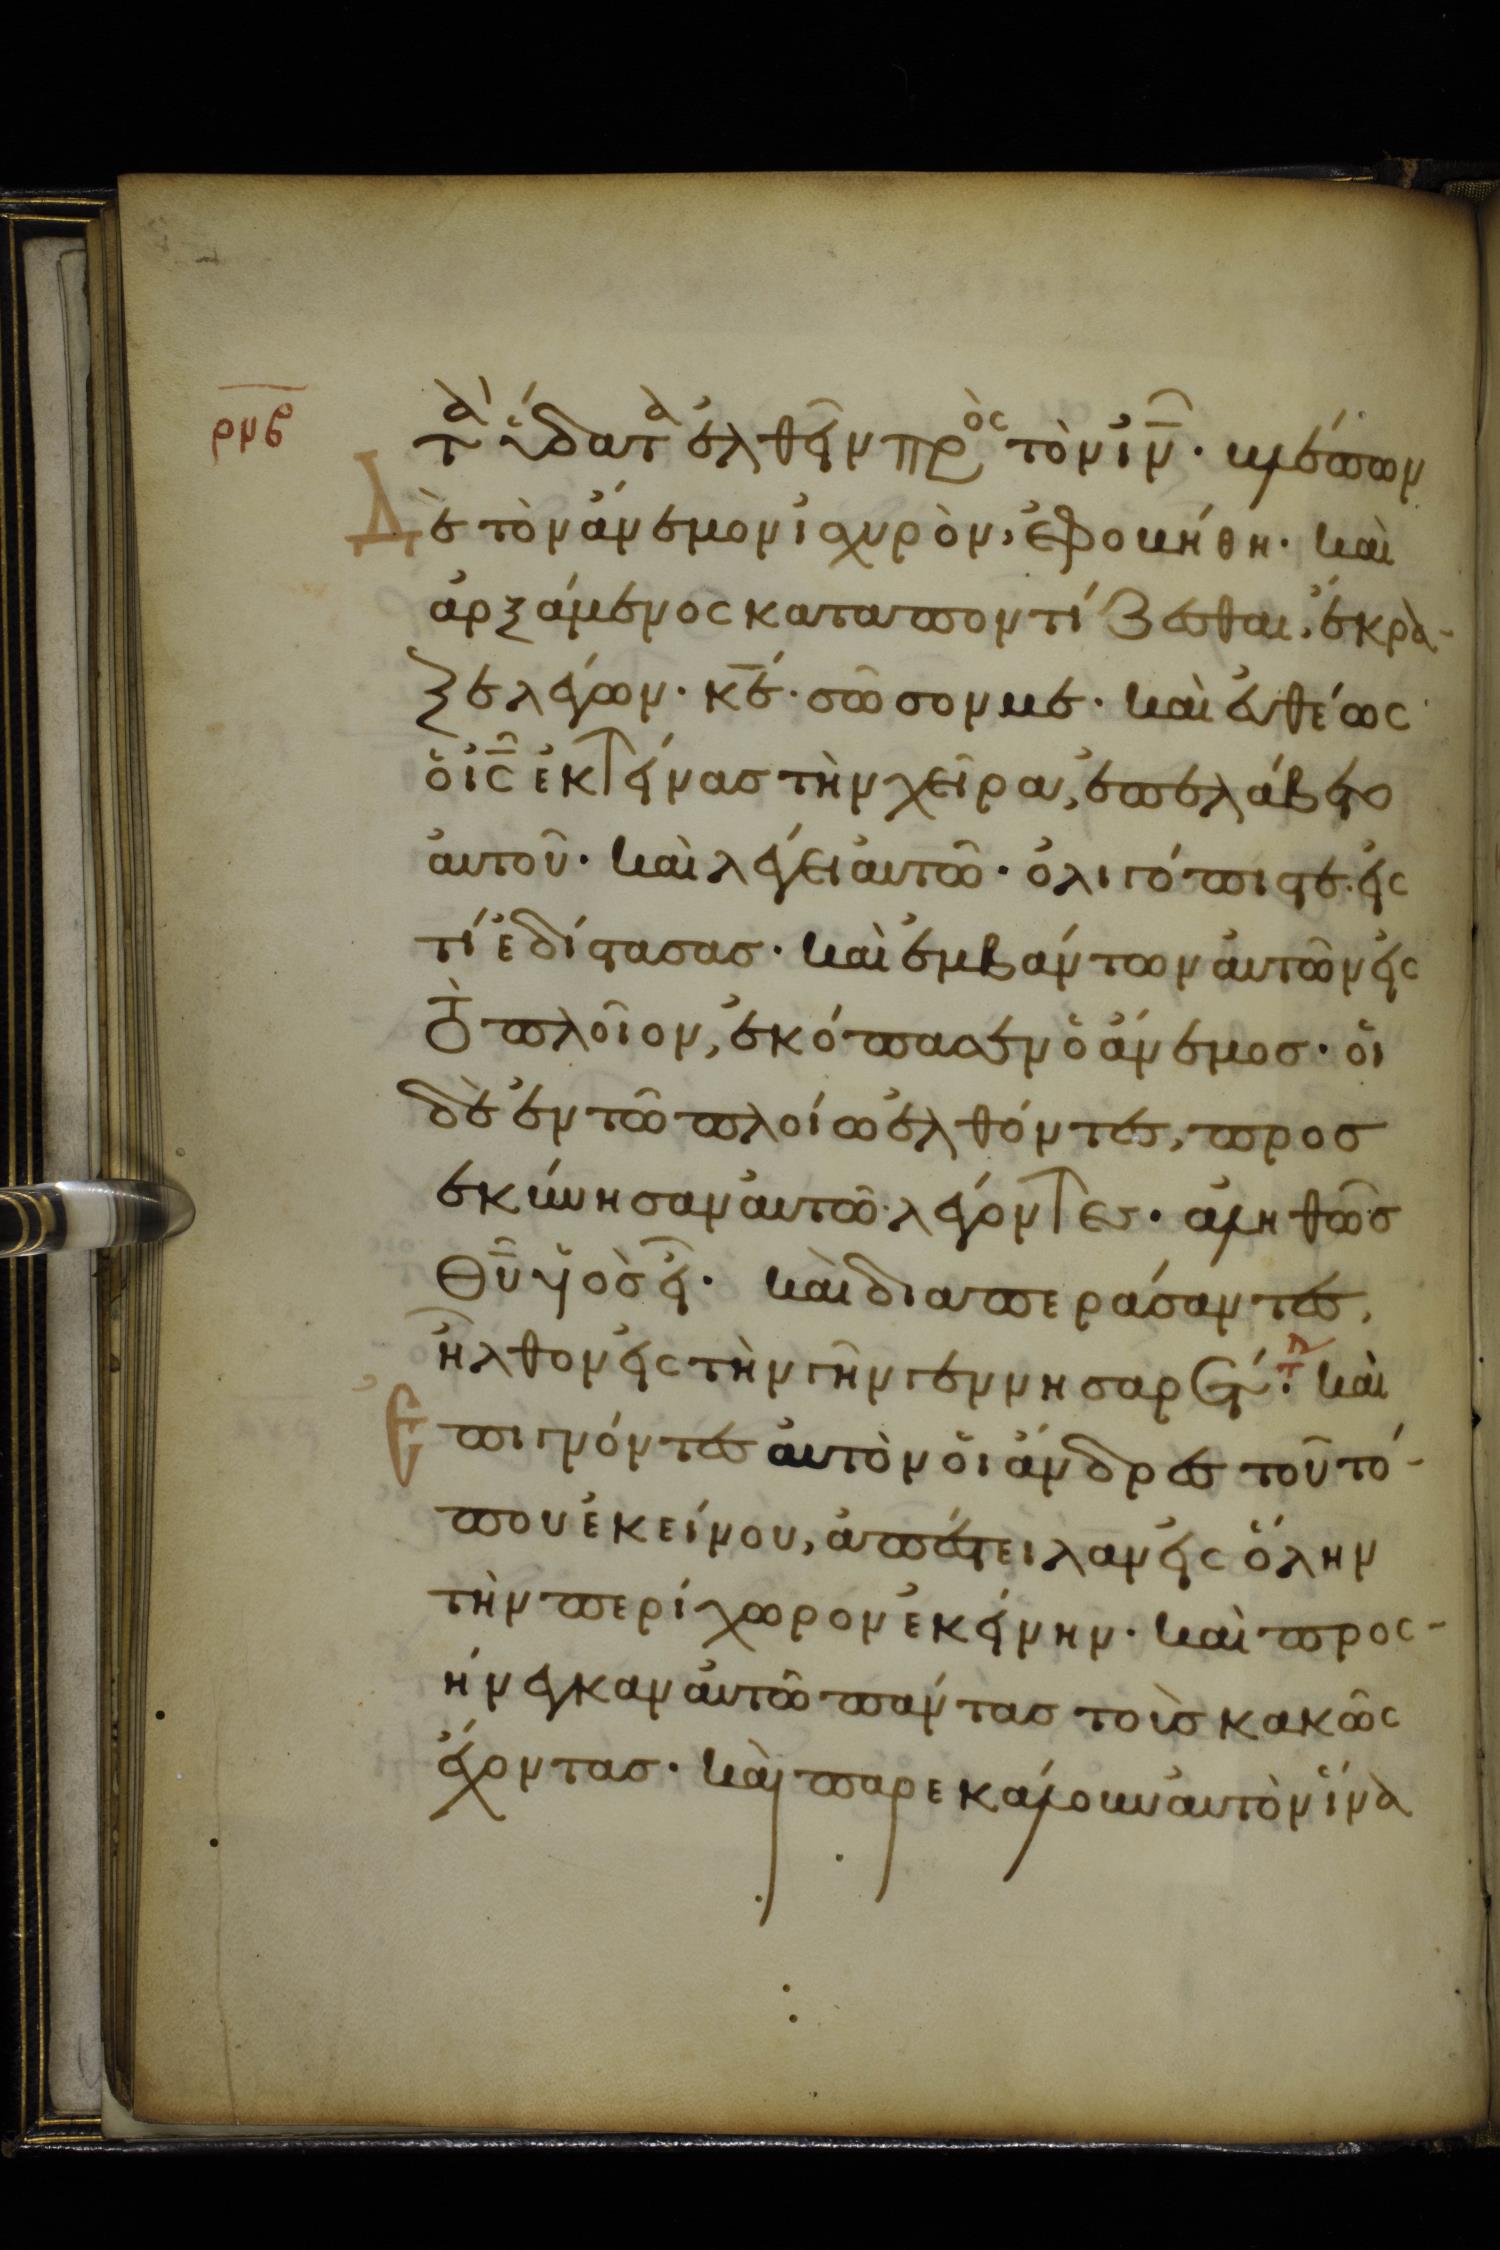 ρμϛ
τὰ ὕδατα ἐλθεῖν πρὸς τὸν ιν̅· βλέπων
Δὲ τὸν ἄνεμον ἰσχυρὸν, ἐφοβήθη· καὶ
ἀρξάμενος καταποντίζεσθαι, ἔκρα-
ξε λέγων· κ̅ε̅· σῶσον με· καὶ ἐυθέως
ὁ ι̅ς̅ ἐκτείνας τὴν χεῖρα, ἐπελάβετο
ἀυτοῦ· καὶ λέγει ἀυτῶ· ὀλιγόπιστε· εἰς
τί ἐδίστασας· καὶ ἐμβάντων ἀυτῶν εἰς
τὸ πλοῖον, ἐκόπασεν ὁ ἄνεμος· ὁι
δὲ ἐν τῶ πλοίω ἐλθόντες, προσ
εκύνησαν ἀυτῶ· λέγοντες· ἀληθῶς
θ̅υ̅ ὑιὸς εἶ· καὶ διαπεράσαντες,
ἦλθον εἰς τὴν γῆν γεννησαρέτ· τ̅ε καὶ
Ἐπιγνόντες ἀυτὸν ὁι ἄνδρες τοῦ τό-
που ἐκείνου, ἀπέστειλαν εἰς ὅλην
τὴν περίχωρον ἐκείνην· καὶ προς-
ήνεγκαν ἀυτῶ πάντας τοὺς κακῶς
ἔχοντας· καὶ παρεκάλουν ἀυτὸν ἵνα